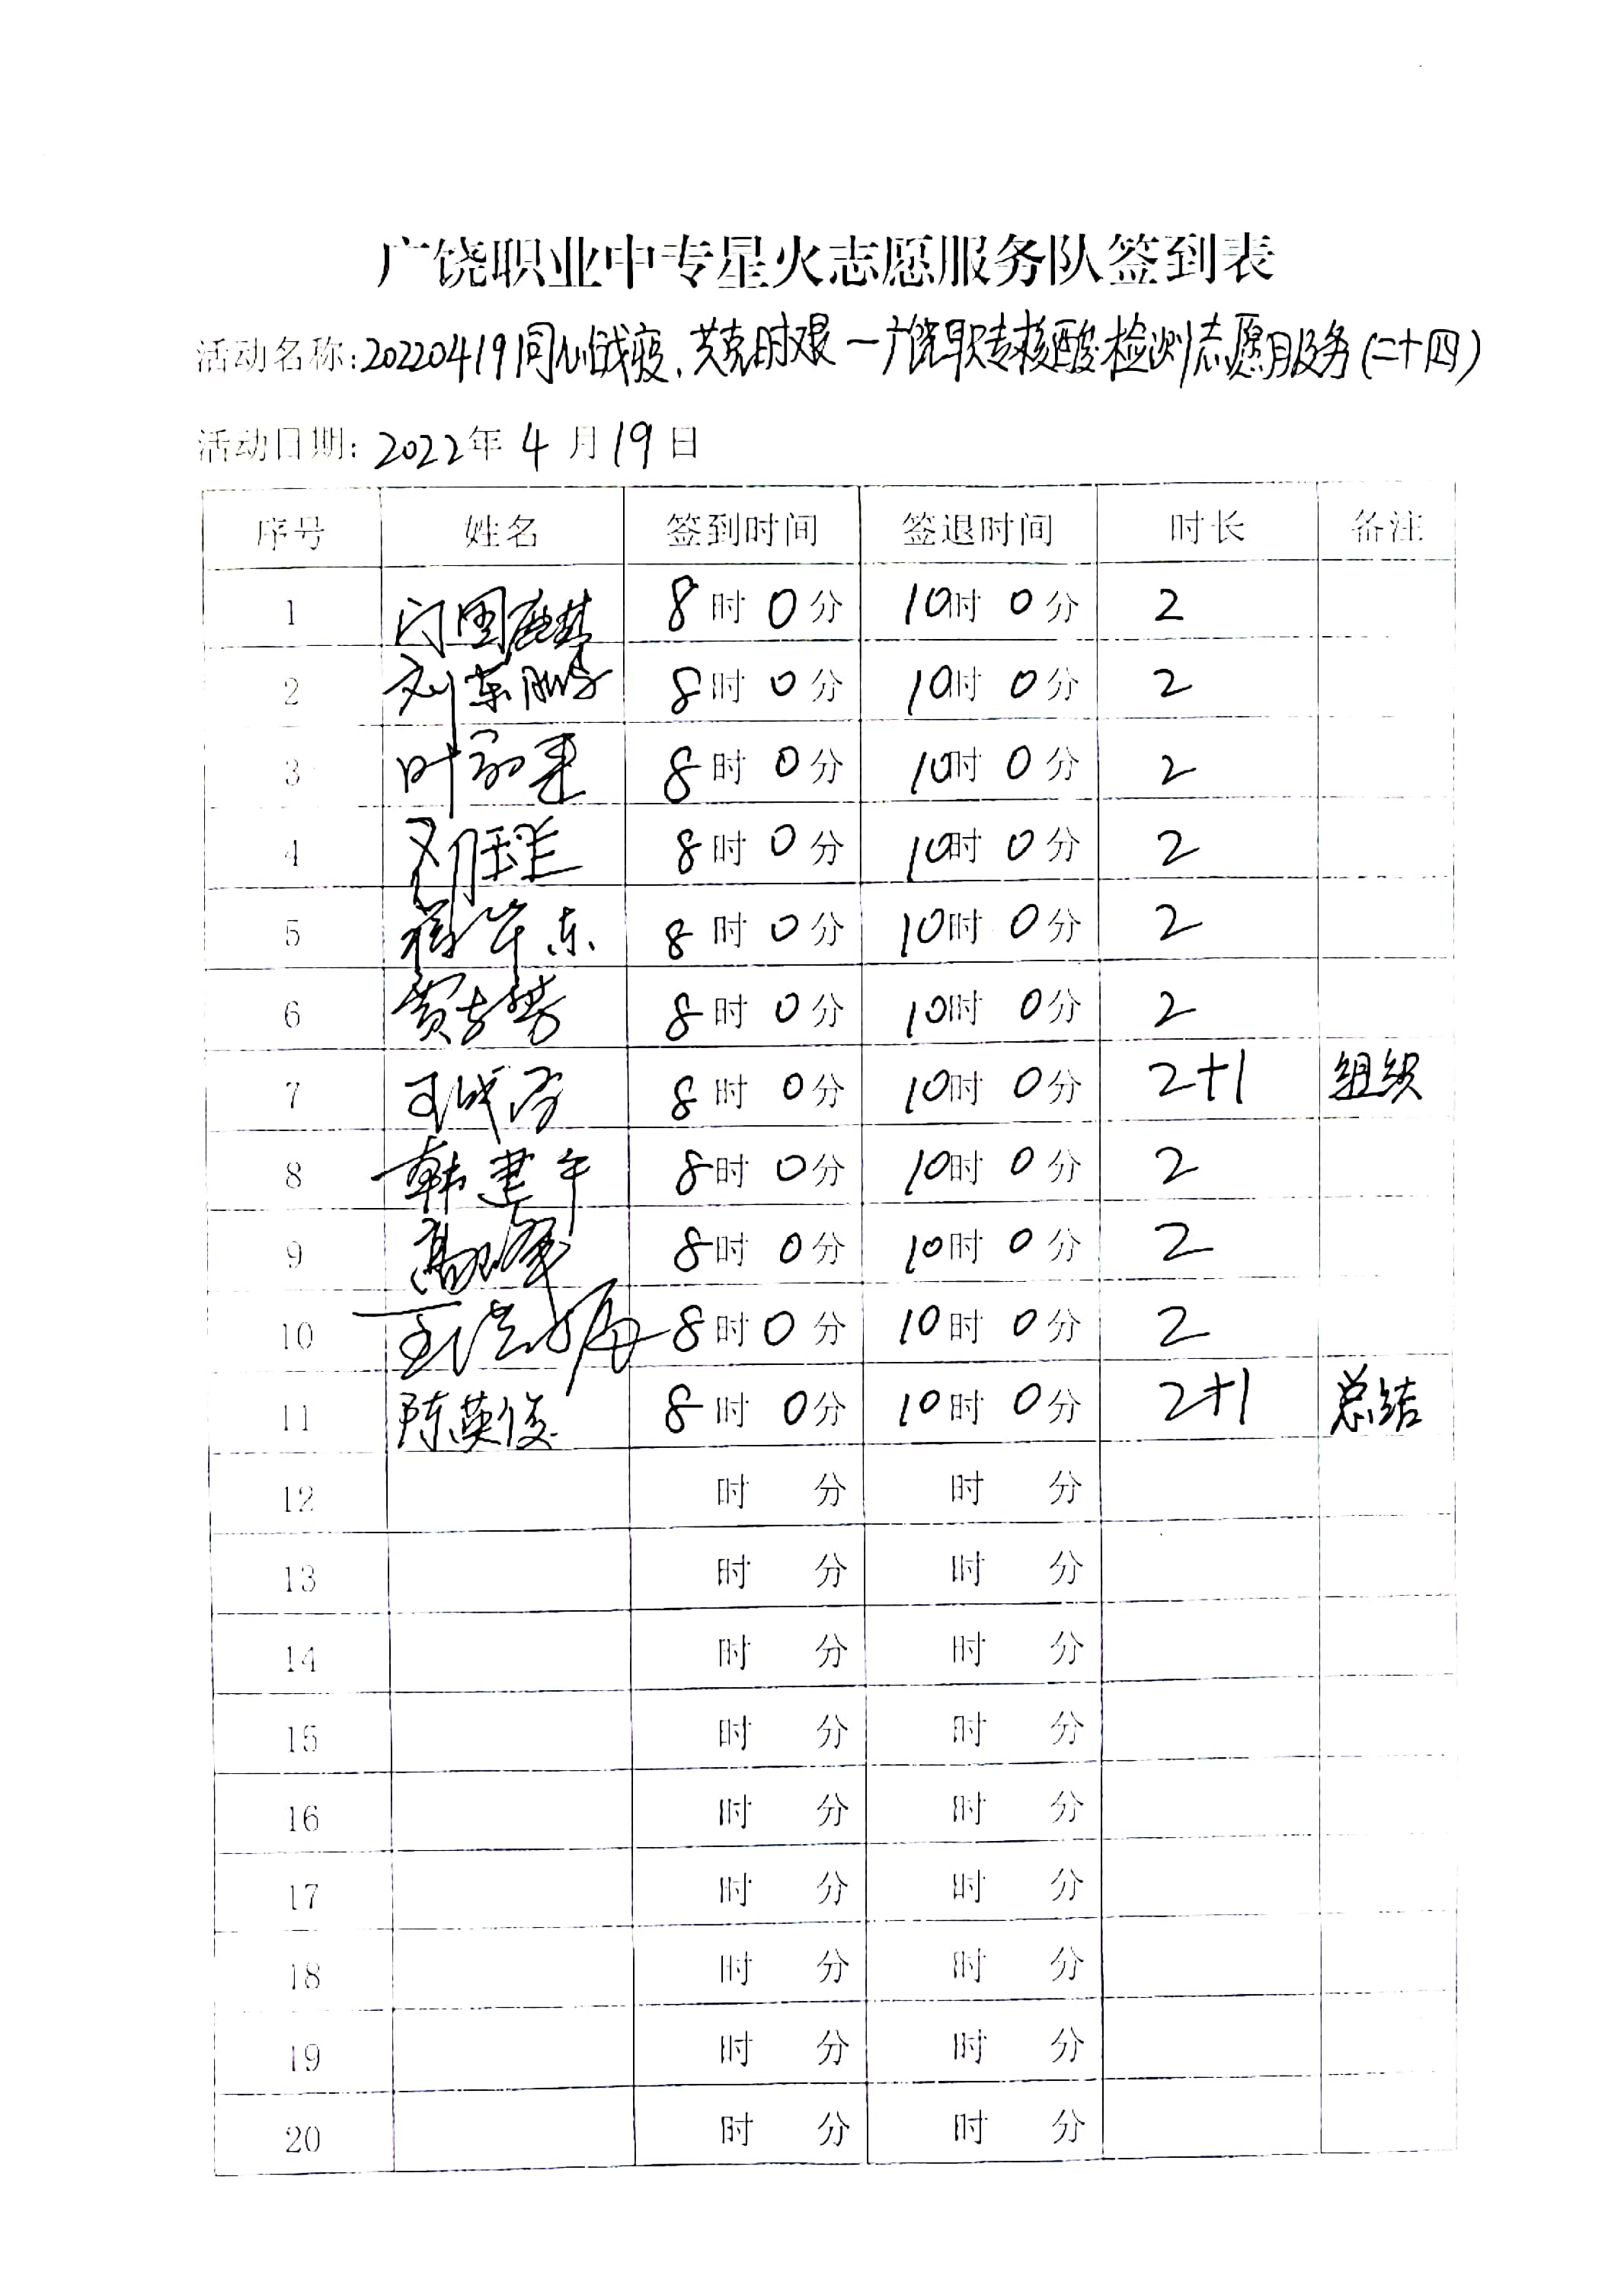 广饶职业中专星火志愿服务队签到表
活动名称:20220419同心战疫、共克时艰—广饶职专核酸检测志愿服务(二十四)
活动日期: 2022年 4 月 19 日
序号 姓名 签到时间 签退时间 时长 备注
1 闫国麒 8时0分 10时0分 2
2 刘东鹏 8时0分 10时0分 2
3 8时0分 10时0分 2
4 8时0分 10时0分 2
5 8时0分 10时0分 2
6 贾志芳 8时0分 10时0分 2
7 8时0分 10时0分 2+1 组织
8 韩建午 8时0分 10时0分 2
9 8时0分 10时0分 2
10 8时0分 10时0分 2
11 陈英俊 8时0分 10时0分 2+1 总结
12 时 分 时 分
13 时 分 时 分
14 时 分 时 分
15 时 分 时 分
16 时 分 时 分
17 时 分 时 分
18 时 分 时 分
19 时 分 时 分
20 时 分 时 分